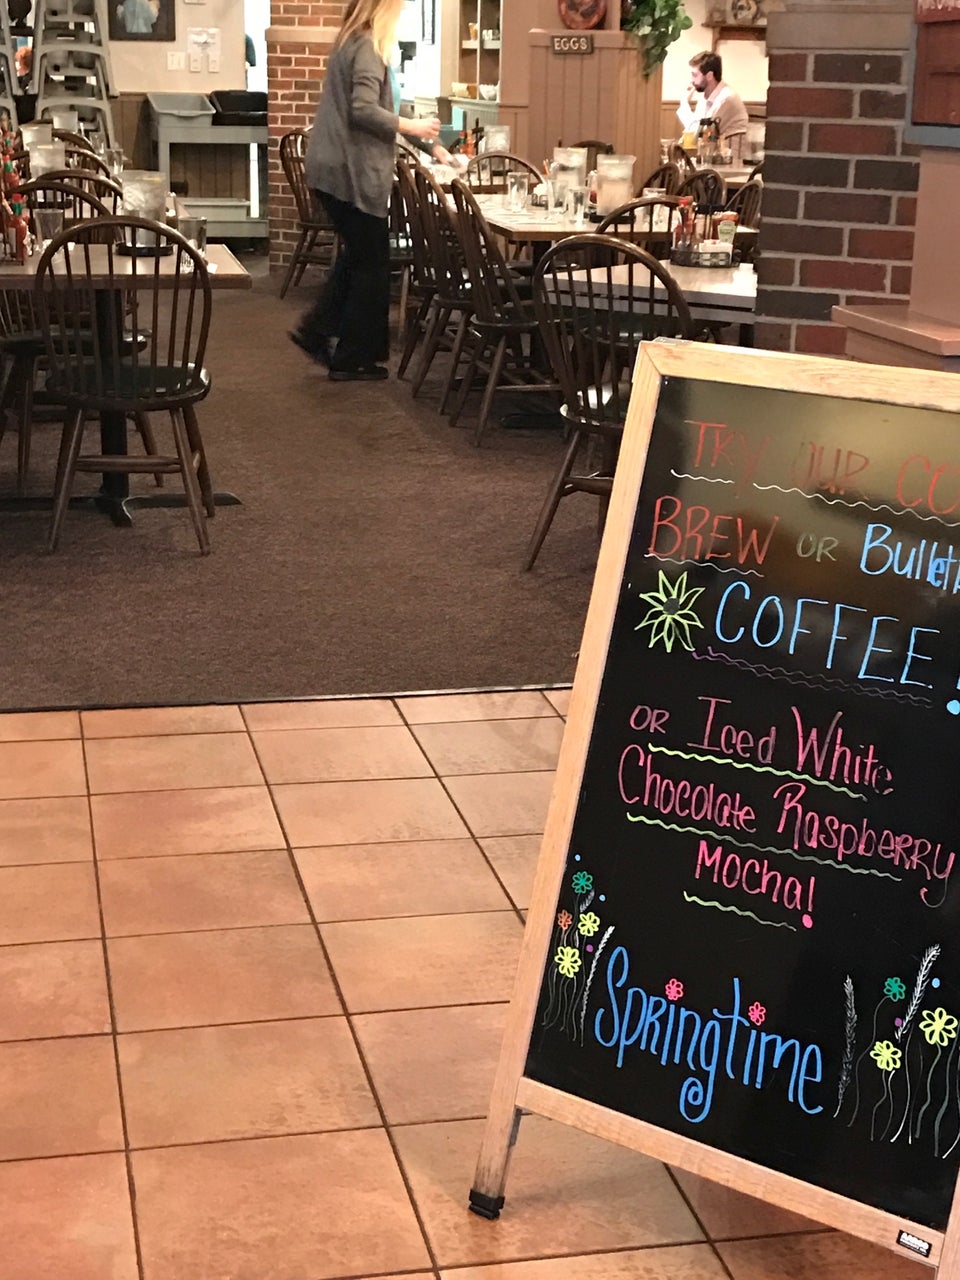 EGGS
TRY OUR CO
BREW OR Bullet
COFFEE!
OR Iced White
Chocolate Raspberry
Mocha!
Springtime